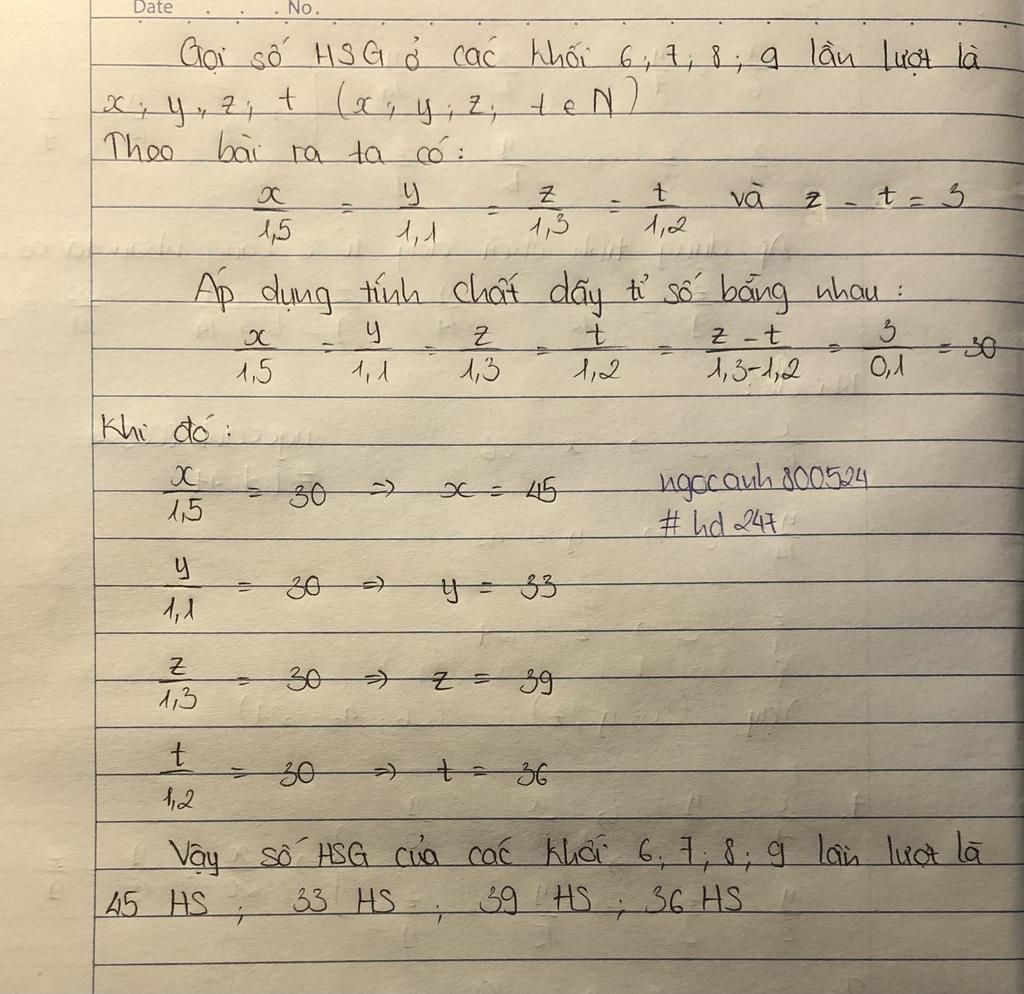 Date . . . No.
Gọi số HSG ở các khối 6, 7, 8, 9 lần lượt là
x, y, z, t (x, y, z, t ∈ N)
Theo bài ra ta có:
x/1,5 = y/1,1 = z/1,3 = t/1,2 và z - t = 3
Áp dụng tính chất dãy tỉ số bằng nhau:
x/1,5 = y/1,1 = z/1,3 = t/1,2 = z - t/1,3-1,2 = 3/0,1 = 30
Khi đó:
x/1,5 = 30 => x = 45
ngocanh800524
# hd 247
y/1,1 = 30 => y = 33
z/1,3 = 30 => z = 39
t/1,2 = 30 => t = 36
Vậy số HSG của các khối 6, 7, 8, 9 lần lượt là
45 HS ; 33 HS ; 39 HS ; 36 HS